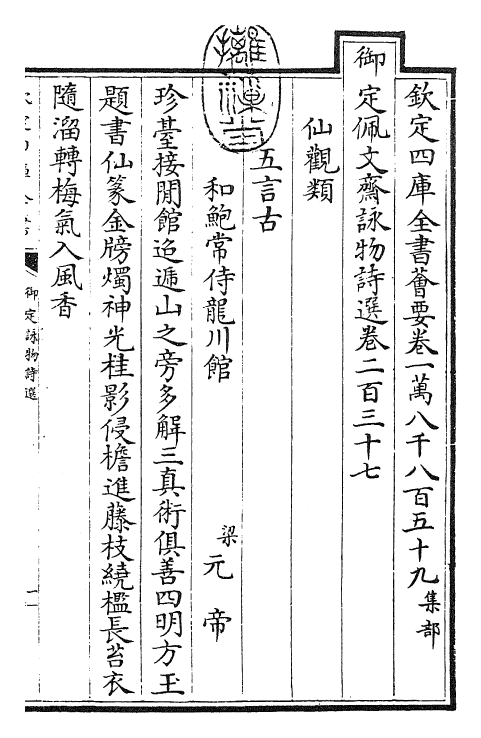 欽定四庫全書薈要卷一萬八千八百五十九集部
御定佩文齋詠物詩選卷二百三十七
仙觀類
五言古
和鮑常侍龍川館 梁元帝
珍臺接閒館迢遞山之旁多解三真術俱善四明方玉
題書仙篆金牓燭神光桂影侵檐進藤枝繞檻長苔衣
隨溜轉梅氣入風香
御定詠物詩選